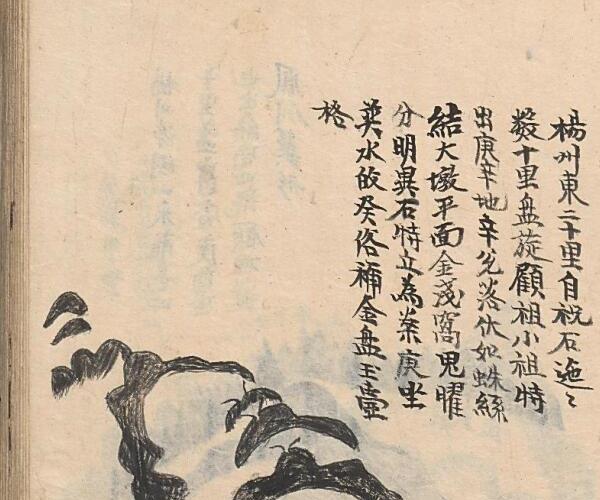 楊州東二十里自祝石迤〻
数十里盘旋顧祖小祖特
出庚辛地辛兊落伏如蛛絲
結大墩平面金淺窩鬼曜
分明異石特立為案庚坐
巽水的癸俗補金盘玉壷
格